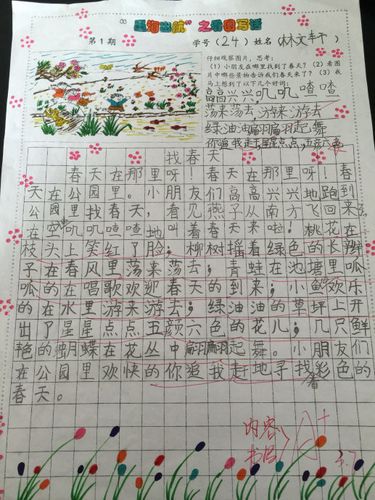 "星海启航"之看图写话
第1期 学号(24)姓名(林文轩)
仔细观察图片,思考:
(1)小朋友在哪里找到了春天?(2)看图
片中哪些景物告诉我们春天来了?(3)我
马上想到了以下几个词:
高高兴兴 叽叽喳喳
荡来荡去 游来游去
绿油油 翩翩起舞
你追我赶 星星点点 五颜六色
找春天
春天在那里呀!春天在那里呀!春
天在公园里。小朋友们高高兴兴地跑到
公园里找春天,看见燕子从南方飞回来,
在空中叽叽喳喳地叫着春天来啦!桃花在
枝头上笑红了脸;柳树摇着绿色的长辫
子在春风里荡来荡去;青蛙在池塘里呱
呱的在唱歌欢迎春天的到来;小鱼欢乐
的在水里游来游去;绿油油的草坪上开
出了星星点点、五颜六色的花儿;几只鲜
艳的蝴蝶在花丛中翩翩起舞。小朋友们
在公园里欢快的你追我赶地寻找着彩色的
春天。
内容
书写
A+
3.7